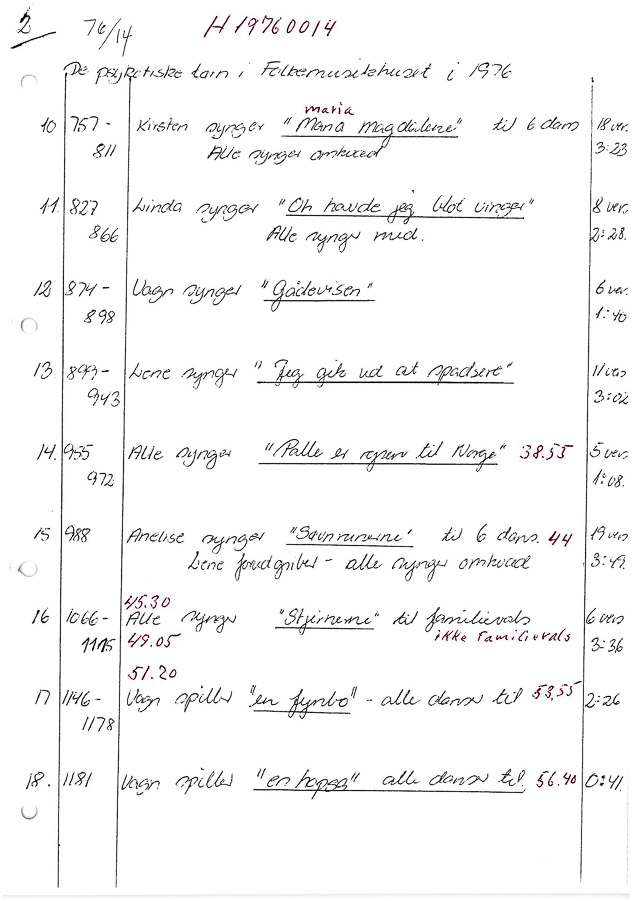 2 76/14 H19760014
De psykotiske børn i Folkemusikhuset i 1976
maria
10 757- Kirsten synger "Maria Magdalene" til 6 dans 18 vers
811 Alle synger omkvæd 3:23
11. 827 Linda synger "Oh havde jeg blot vinger" 8 vers
866 Alle synger med. 2:28.
12 874- Vagn synger "Gådevisen" 6 vers
898 1:40
13 899- Lene synger "Jeg gik ud at spadsere" 11 vers
943 3:02
14. 955 Alle synger "Palle er rejsen til Norge" 38.55 5 vers
972 1:08.
15 988 Anelise synger til 6 dans. 44 19 vers
Lene forudgriber - alle synger omkvæd 3:49.
45.30
16 1066- Alle synger "Stjernerne" til familievals 6 vers
1115 49.05 ikke Familievals 3:36
51.20
17 1146- Vagn spiller "en fynbo" - alle danser til 53,55 2:26
1178
18. 1181 Vagn spiller "en hopsa" alle danser til. 56.40 0:41.